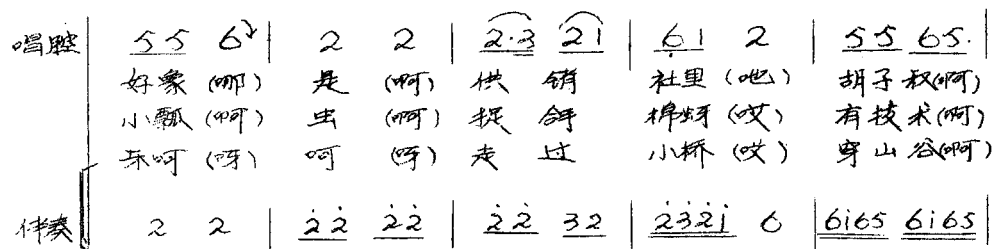 唱腔 5 5 6 | 2 2 | 2·3 2 1 | 6 1 2 | 5 5 6 5·
好象(哪) 是(啊) 供销 社里(吔) 胡子叔(啊)
小瓢(啊) 虫(啊) 捉 棉蚜(哎) 有技术(啊)
呀呵(呀) 呵(呀) 走过 小桥(哎) 穿山谷(啊)
伴奏 2 2 | 2̇ 2̇ 2̇ 2̇ | 2̇ 2̇ 3 2 | 2̇ 3̇ 2̇ i 6 | 6 i 6 5 6 i 6 5